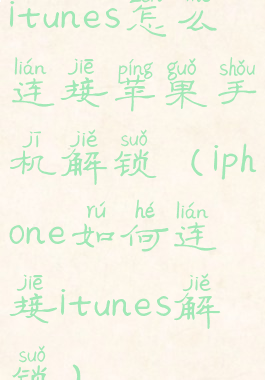 itunes怎么
lián jiē píng guǒ shǒu
连接苹果手
jī jiě suǒ
机解锁（iph
rú hé lián
one如何连
jiē jiě
接itunes解
suǒ
锁）